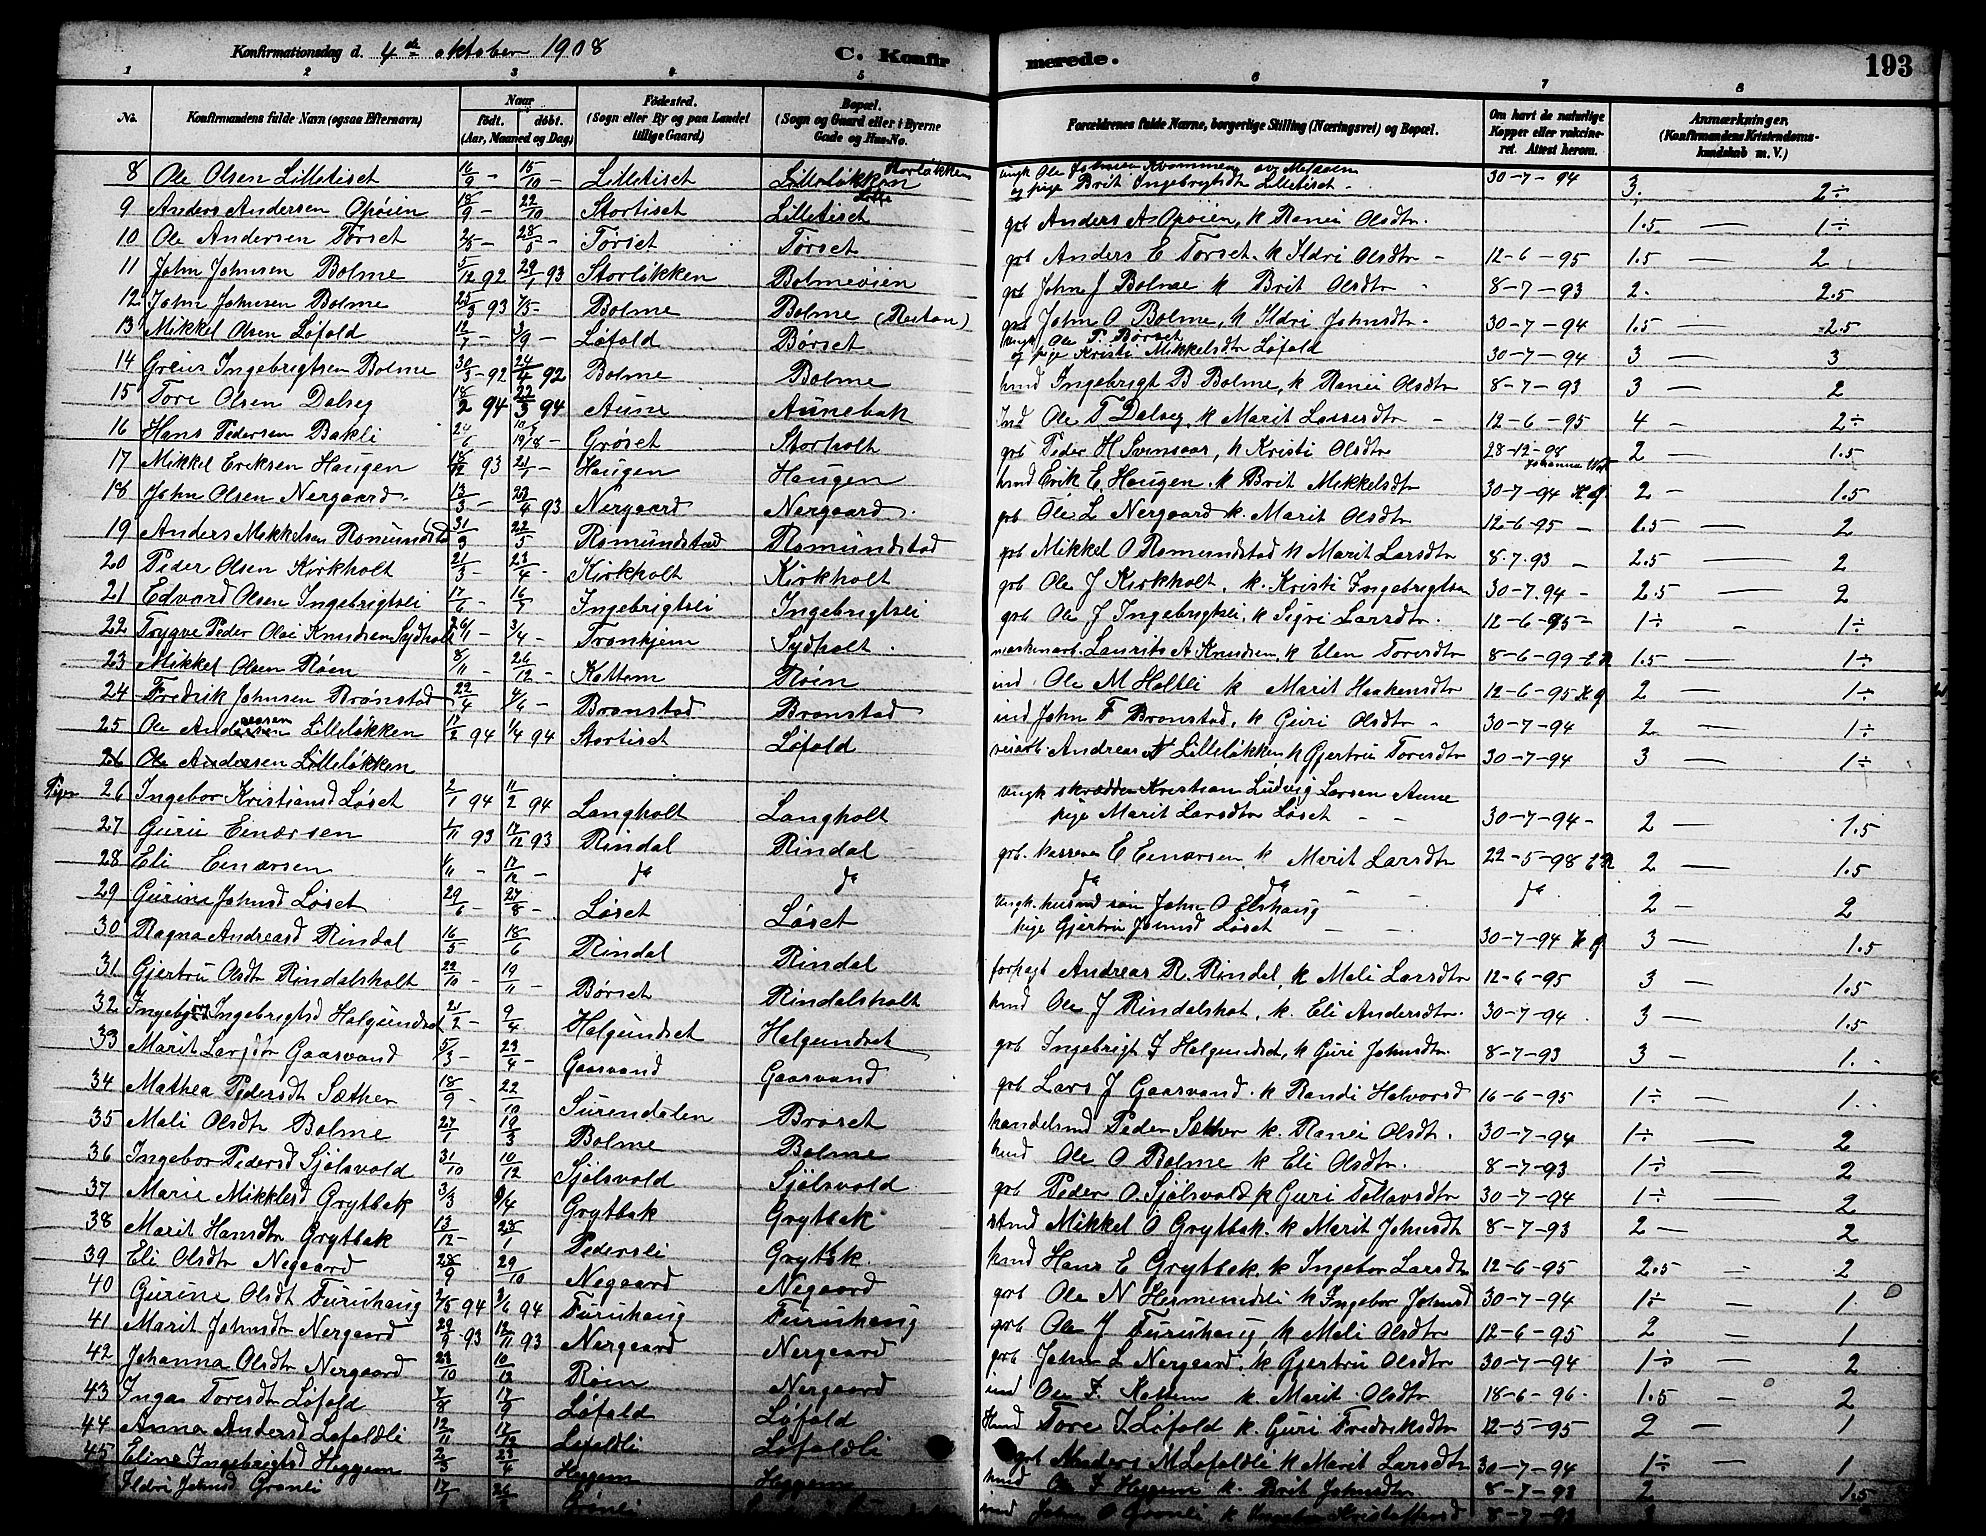 Konfirmationsdag d. 4de oktober 1908
C. Konfirmerede.
193
1 2 3 4 5 6 7 8
No. Konfirmandens fulde Navn (ogsaa Efternavn) Naar født. døbt. (Aar, Maaned og Dag) Födested. (Sogn eller By og paa Landet tillige Gaard) Bopæl. (Sogn og Gaard eller i Byerne Gade og Hus-No. Forældrenes fulde Navne, borgerlige Stilling (Næringsvei) og Bopæl. Om havt de naturlige Kopper eller vaccineret. Attest herom. Anmærkninger. (Konfirmandens Kristendomskundskab m. V.)
8 Ole Olsen Lilletiset 16/9 - 15/10 - Lilletiset Lilleløkken Storløkken ungk Ole Johnsen Kvammen og pige Brit Ingebrigtsdtr Lilletiset 30-7-94 3. 2÷
9 Anders Andersen Opøien 18/9 - 22/10 Stortiset Lilletiset grb Anders A Opøien, k Ranei Olsdtr. 1.5 1÷
10 Ole Andersen Tørset 28/5 - Tørset Tørset grb Anders E Tørset k Ildri Olsdtr 12-6-95 1.5 2
11 John Johnsen Bolme 5/12 92 29/1 93 Storløkken Bolmeøien grb John J Bolme k Brit Olsdtr 8-7-93 2. 2.5
12 John Johnsen Bolme 25/3 93 7/5 - Bolme Bolme grb John O Bolme, k Ildri Johnsdtr 30-7-94 1.5 2.5
13 Mikkel Olsen Løfald 16/7 - 3/9 - Løfald Børset ungk Ole P. Børset og pige Kristi Mikkelsdtr Løfald 30-7-94 3 3
14 Greis Ingebrigtsen Bolme 30/3 - 92 24/4 92 Bolme Bolme husd Ingebrigt B Bolme, k Ranei Olsdtr 8-7-93 3 2
15 Tore Olsen Dalseg 18/2 94 22/3 94 Aune Aunebak Ind Ole T Dalseg, k Marit Lassesdtr 12-6-95 4 2÷
16 Hans Pedersen Bakli 24/6 Grøset Storholt grb Peder H Svinsaas, k Kristi Olsdtr 28-12-98 2 1.5
17 Mikkel Eriksen Haugen 18/12 93 21/1 - Haugen Haugen husd Erik E. Haugen k Brit Mikkelsdtr 30-7-94 2 1.5
18 John Olsen Nergaard 13/3 - 23/4 93 Nergaard Nergaard grb Ole L Nergaard k. Marit Olsdtr 12-6-95 1.5 2
19 Anders Mikkelsen Romundstad 31/3 22/5 Romundstad Romundstad grb Mikkel O Romundstad k Marit Larsdtr 8-7-93 2.5 2
20 Peder Olsen Kirkholt 21/3 - 23/4 - Kirkholt Kirkholt grb Ole J Kirkholt, k. Kristi Ingebrigtsen 30-7-94 2.5 2
21 Edvard Olsen Ingebrigtsli 17/6 - 16/7 Ingebrigtsli Ingebrigtsli grb Ole J Ingebrigtsli, k Sigri Larsdtr 12-6-95 1÷ 1÷
22 Trygve Peder Olai Knudsen Sydholt 26/11 - 3/4 - Tronhjem Sydholt maskenarb. Laurits A Knudsen, k Elen Toresdtr 8-6-99 1.5 1÷
23 Mikkel Olsen Røen 8/11 - 26/12 - Kattem Røin ind Ole M Holtli k Marit Haakensdtr 12-6-95 2 1÷
24 Fredrik Johnsen Brønstad 22/4 4/6 - Brønstad Brønstad ind John F Brønstad, k Guri Olsdtr 30-7-94 2 1÷
25 Ole Andreasen Lilleløkken 17/2 94 1/4 94 Stortiset Løfald veiarb. Andreas Lilleløkken, k Gjertru Toresdtr 30-7-94 3 1÷
26 Ole Andersen Lilleløkken
Piger 26 Ingebor Kristiansd Løset 2/1 94 11/2 94 Langholt Langholt ungk skrædder Kristian Ludvig Larsen Aune pige Marit Larsdtr Løset 30-7-94 2 1.5
27 Guri Einarsen 1/11 93 17/12 93 Rindal Rindal grb. E Einarsen, k Marit Larsdtr 22-5-98 2 1.5
28 Eli Einarsen 1/11 - 17/12 - do do do do do 2 2
29 Gurine Johnsd Løset 29/6 - 27/8 - Løset Løset ungk. husmd søn John O Elshaug pige Gjertru Johnsd Løset 30-7-94 3 1.5
30 Ragna Andreasd Rindal 16/5 18/6 Rindal Rindal forpagt Andreas R. Rindal, k Mali Larsdtr 12-6-95 3 1.5
31 Gjertru Olsdtr Rindalsholt 22/10 - 19/11 Børset Rindalsholt husd Ole J Rindalshot, k. Eli Andersdtr. 30-7-94 3 1.5
32 Ingebor Ingebrigtsd Halgundset 21/2 - 9/4 Halgundset Halgundset grb Ingebrigt I Halgundset, k Guri Johnsdtr. 8-7-93 3 1.
33 Marit Larsdtr Gaasvand 5/3 - 23/4 - Gaasvand Gaasvand grb Lars J Gaasvand k Randi Halvorsd 16-6-95 1÷ 1.
34 Mathea Pedersdtr Sæther 18/9 - 22/10 Surendalen Brøset handelsmd Peder Sæther k. Ranei Olsdtr. 30-7-94 1÷ 2
35 Mali Olsdtr Bolme 27/1 19/3 Bolme Bolme husd Ole O Bolme k Eli Olsdtr. 8-7-93 1÷ 2
36 Ingebor Pedersd Sjølsvold 31/10 10/12 Sjølsvold Sjølsvold grb Peder O. Sjølsvold k Guri Tollavsdtr 30-7-94 1÷ 2
37 Marie Mikkelsd Grytbak 3/3 9/4 Grytbak Grytbak Mikkel O Grytbak k Marit Johnsdtr 8-7-93 2 2
38 Marit Hansdtr Grytbak 13/12 - 28/1 Pedersli Grytbak husd Hans E Grytbak k Ingebor Larsdtr 12-6-95 2.5 2
39 Eli Olsdtr Negaard 28/9 29/10 Negaard Negaard grb Ole N Hermundsli k Ingebor Johnsd 30-7-94 1÷ 1
40 Gurine Olsdt Furuhaug 2/5 94 3/6 94 Furuhaug Furuhaug grb Ole J Furuhaug k Mali Olsdtr 12-6-95 2 1
41 Marit Johnsdtr Nergaard 29/9 93 12/11 93 Nergaard Nergaard grb John L Nergaard k Gjertru Olsdtr 30-7-94 1÷ 2
42 Johanna Olsdtr Nergaard 23/10 10/12 Røin Nergaard ind Ole F. Kattem k. Marit Olsdtr 18-6-96 1.5 2
43 Inga Toresdtr Løfald 7/8 17/9 Løfald Løfald Husd Tore I Løfald k. Guri Fredriksdtr 12-5-95 2 1
44 Anna Andersd Løfaldli 12/11 17/12 Løfaldli Løfaldli grb Anders M Løfaldli k Marit Larsdtr 30-7-94 1÷ 1
45 Eline Ingebrigtsd Heggem 2/3 23/4 Heggem Heggem husd Ole I Heggem k. Brit Johnsdtr 8-7-93 2 1.5
Ildri Johnsd Grønli 17/7 Grønli John O Grønli k 8-7-93